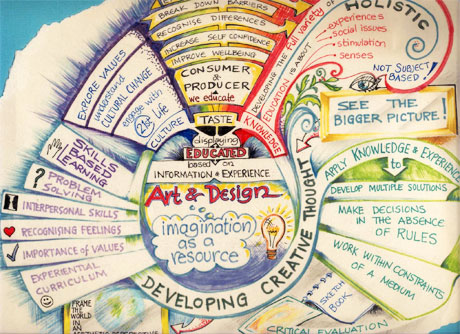 BREAK DOWN BARRIERS
RECOGNISE DIFFERENCES
INCREASE SELF CONFIDENCE
IMPROVE WELLBEING
CONSUMER &
PRODUCER
we educate
TASTE
displaying
EDUCATED
based on
INFORMATION & EXPERIENCE
Art & Design
is
imagination
as a
resource
DEVELOPING CREATIVE THOUGHT
EXPLORE VALUES
understand
CULTURAL CHANGE
engage with
21st Life
CULTURE
KNOWLEDGE
EDUCATION IS ABOUT
DEVELOPING THE full variety of
HOLISTIC
experiences
social issues
stimulation
senses
NOT SUBJECT
BASED!
SEE THE
BIGGER PICTURE!
APPLY KNOWLEDGE & EXPERIENCE
to
DEVELOP MULTIPLE SOLUTIONS
MAKE DECISIONS
IN THE ABSENCE
OF RULES
WORK WITHIN CONSTRAINTS
OF A MEDIUM
SKILLS
BASED
LEARNING
? PROBLEM
SOLVING
INTERPERSONAL SKILLS
RECOGNISING FEELINGS
IMPORTANCE of VALUES
EXPERIENTIAL
CURRICULUM
FRAME
THE WORLD
IN AN
AESTHETIC PERSPECTIVE
SKETCH
BOOK
CRITICAL EVALUATION